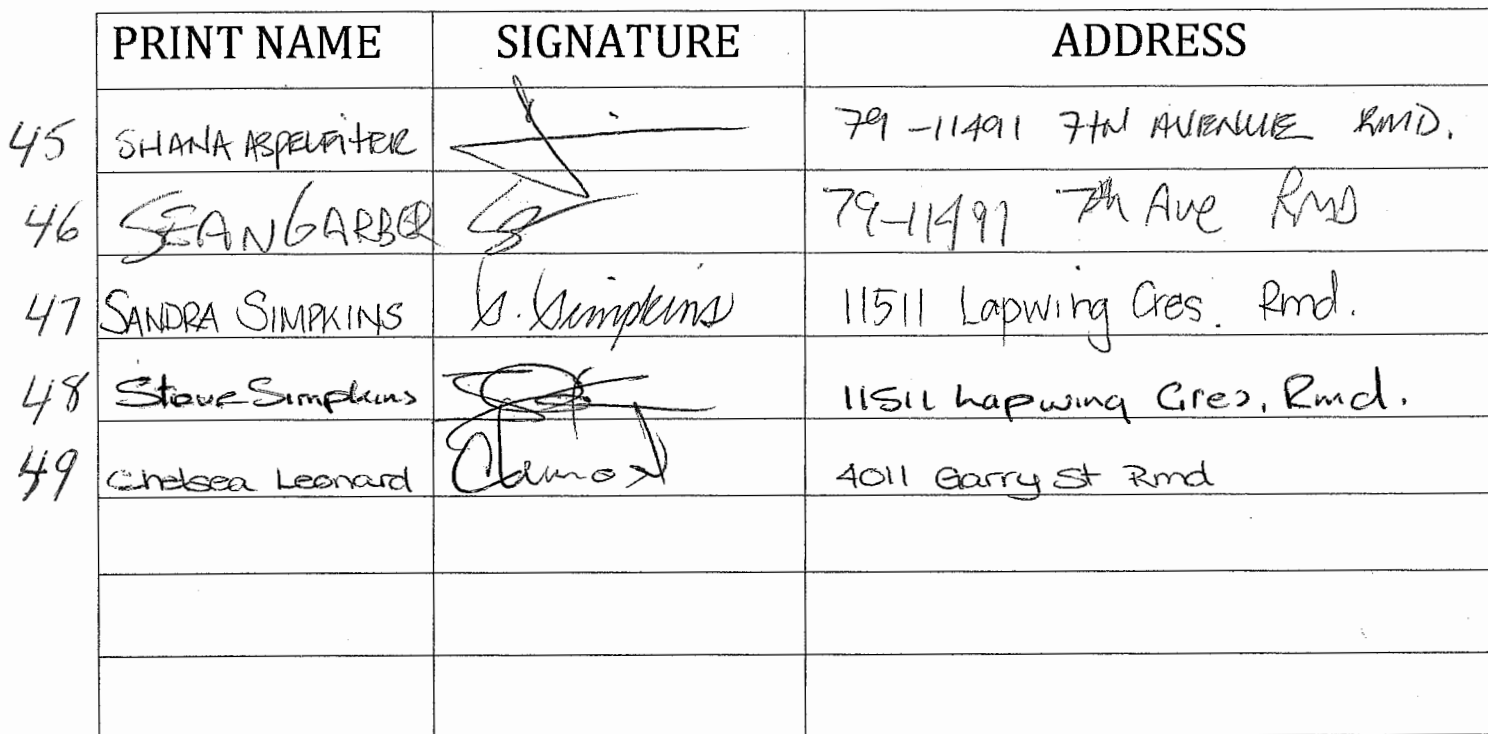 PRINT NAME SIGNATURE ADDRESS
45 SHANA 79-11491 7TH AVENUE RMD.
46 SEAN GARBER 79-11491 7th Ave Rmd
47 SANDRA SIMPKINS S. Simpkins 11511 Lapwing Cres. Rmd.
48 Steve Simpkins 11511 Lapwing Cres, Rmd.
49 Chelsea Leonard 4011 Garry St Rmd